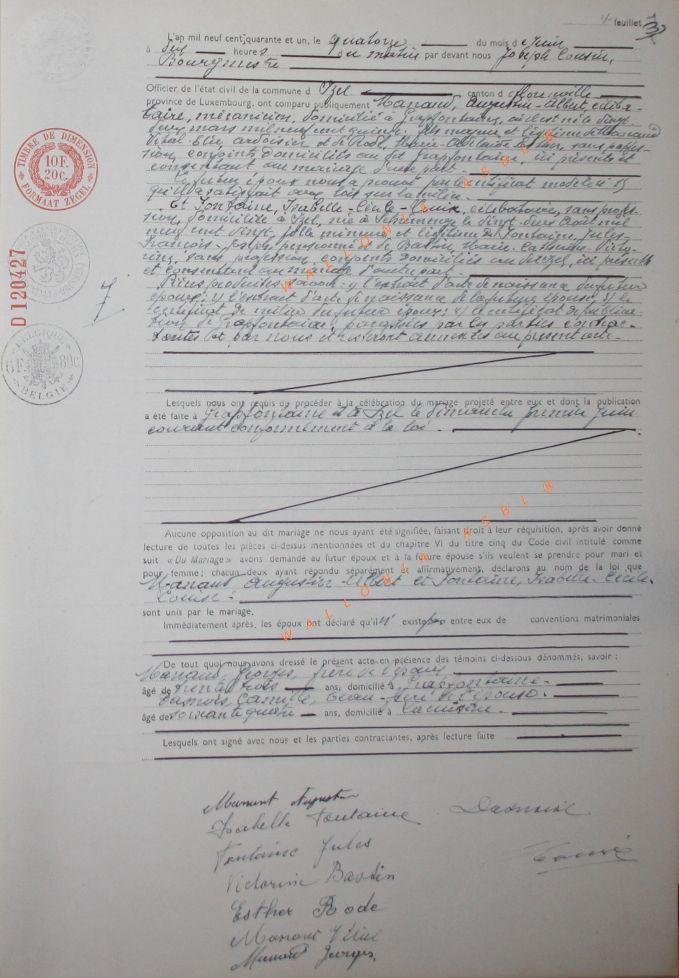 4e feuillet
3
L'an mil neuf cent quarante et un, le quatorze du mois de Juin
à dix heures du matin par devant nous Joseph Cousin,
Bourgmestre
Officier de l'état civil de la commune d'Izel canton de Florenville
province de Luxembourg, ont comparu publiquement Manand, Augustin-Albert, céliba-
taire, mécanicien, domicilié à Grapfontaine, où il est né le vingt
deux mars mil neuf cent quinze, fils majeur et légitime de Manand
ardoisier et de Rode, Marie- sans profes-
sion, conjoints domiciliés au dit Grapfontaine, ici présents et
consentant au mariage d'une part.
Le futur époux nous a prouvé par le certificat modèle
qu'il a satisfait aux lois sur la milice.
Et Fontaine, Isabelle-Cécile-Louise, célibataire, sans profes-
sion, domiciliée à Izel, née à le vingt-deux Août mil
neuf cent vingt, fille mineure et légitime de Fontaine, Jules-
François-Joseph, pensionné et de Bastin, Marie-Catherine-Victo-
rine, sans profession, conjoints domiciliés au dit Izel, ici présents
et consentant au mariage d'autre part.
Pièces produites, savoir: 1/ l'extrait d'acte de naissance du futur
époux; 2/ l'extrait d'acte de naissance de la future épouse; 3/ le
certificat de milice du futur époux; 4/ le certificat de publica-
tion de Grapfontaine; paraphées par les parties contrac-
tantes et par nous et resteront annexées au présent acte.
Lesquels nous ont requis de procéder à la célébration du mariage projeté entre eux et dont la publication
a été faite à Grapfontaine et à Izel le dimanche premier juin
courant conformément à la loi.
Aucune opposition au dit mariage ne nous ayant été signifiée, faisant droit à leur réquisition, après avoir donné
lecture de toutes les pièces ci-dessus mentionnées et du chapitre VI du titre cinq du Code civil intitulé comme
suit « Du Mariage » avons demandé au futur époux et à la future épouse s'ils veulent se prendre pour mari et
pour femme ; chacun deux ayant répondu séparément et affirmativement, déclarons au nom de la loi que
Manand, Augustin-Albert et Fontaine, Isabelle-Cécile-
Louise
sont unis par le mariage.
Immédiatement après, les époux ont déclaré qu'il n'existe pas entre eux de conventions matrimoniales
De tout quoi nous avons dressé le présent acte en présence des témoins ci-dessous dénommés, savoir :
Manand, Georges, frère de l'époux,
âgé de trente trois ans, domicilié à Grapfontaine.
Camille, beau-frère de l'épouse.
âgé de ans, domicilié à
Lesquels ont signé avec nous et les parties contractantes, après lecture faite
Manant Augustin
Isabelle Fontaine
Fontaine Jules
Victorine Bastin
Esther Rode
Manant
Manand Georges.
TIMBRE DE DIMENSION
10F.
20c.
FORMAAT ZEGEL
D 120427
BELGIQUE
6F. 80c
BELGIE
7.
WALLONIA ASBL ®
WALLONIA ASBL ®